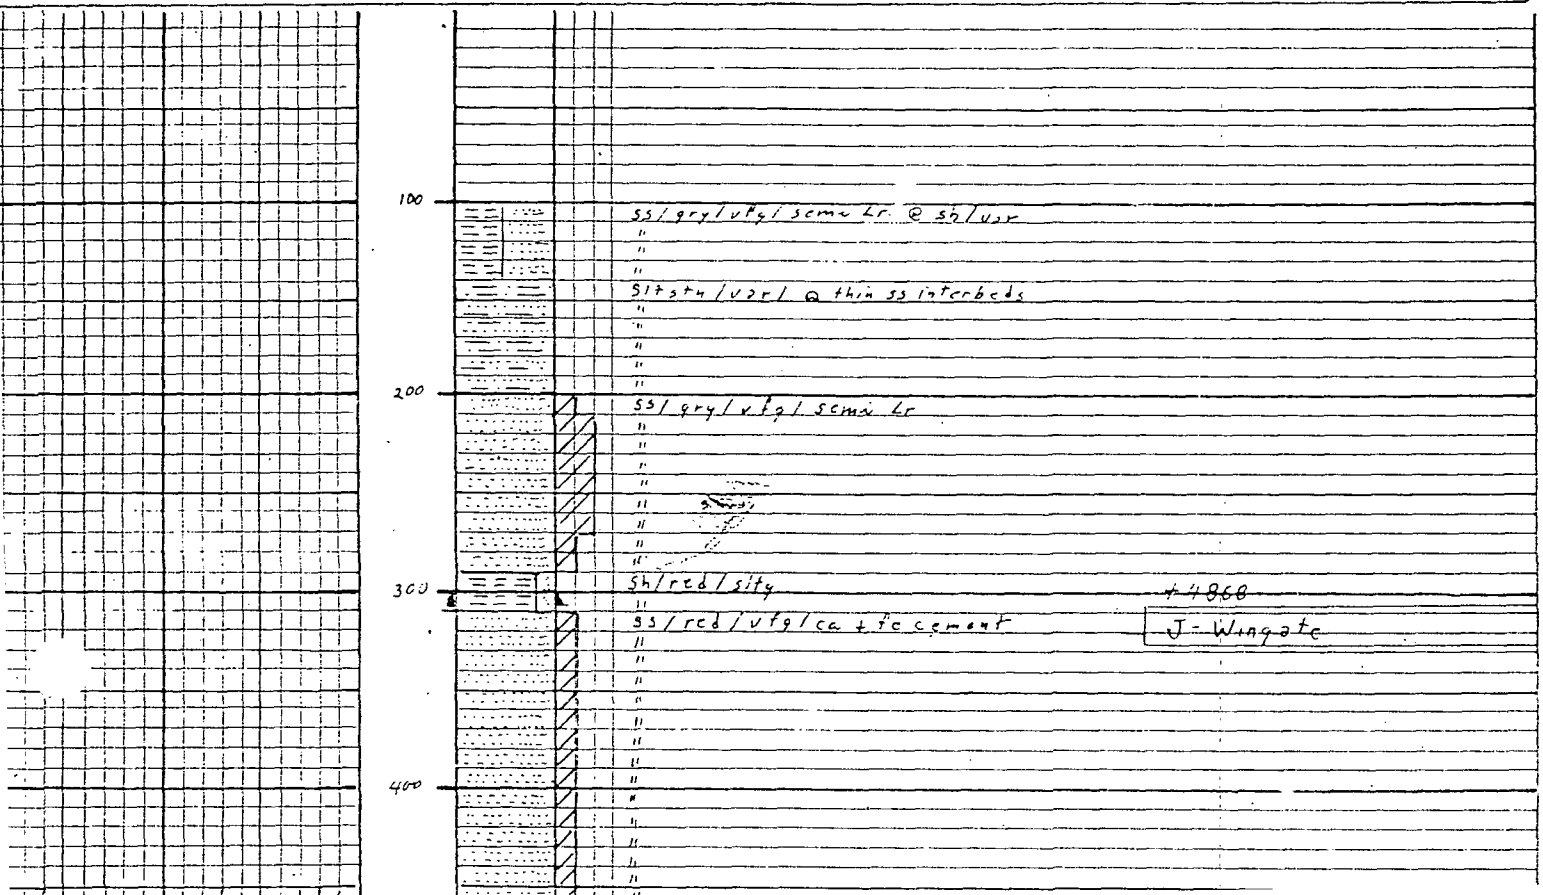 100
ss/gry/vfg/ semi Lr. @ sh/var
"
"
"
sltstn/var/ @ thin ss interbeds
"
"
"
"
200
ss/gry/vfg/ semi Lr
"
"
"
"
"
"
"
sh/red/slty
300
+4868
"
ss/red/vfg/ca + fe cement
J-Wingate
"
"
"
"
"
"
"
400
"
"
"
"